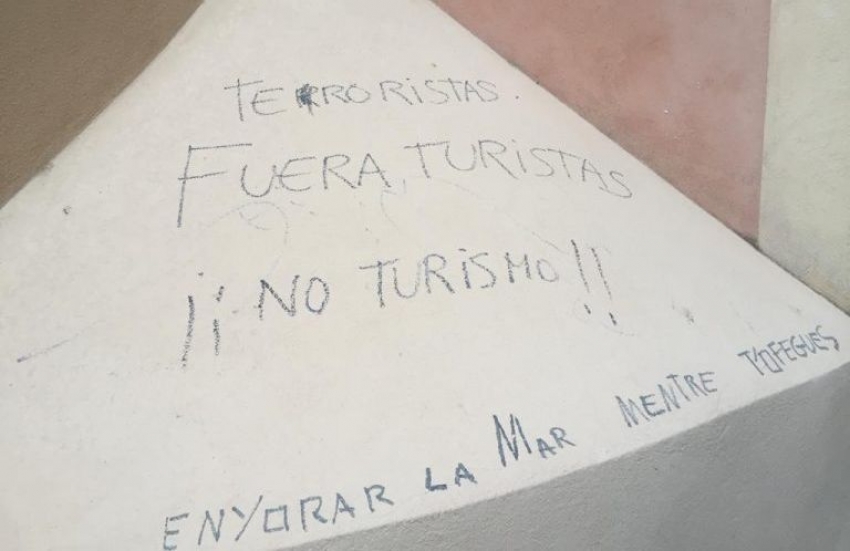 TERRORISTAS.
FUERA TURISTAS
¡¡NO TURISMO!!
ENYORAR LA MAR MENTRE T'OFEGUES